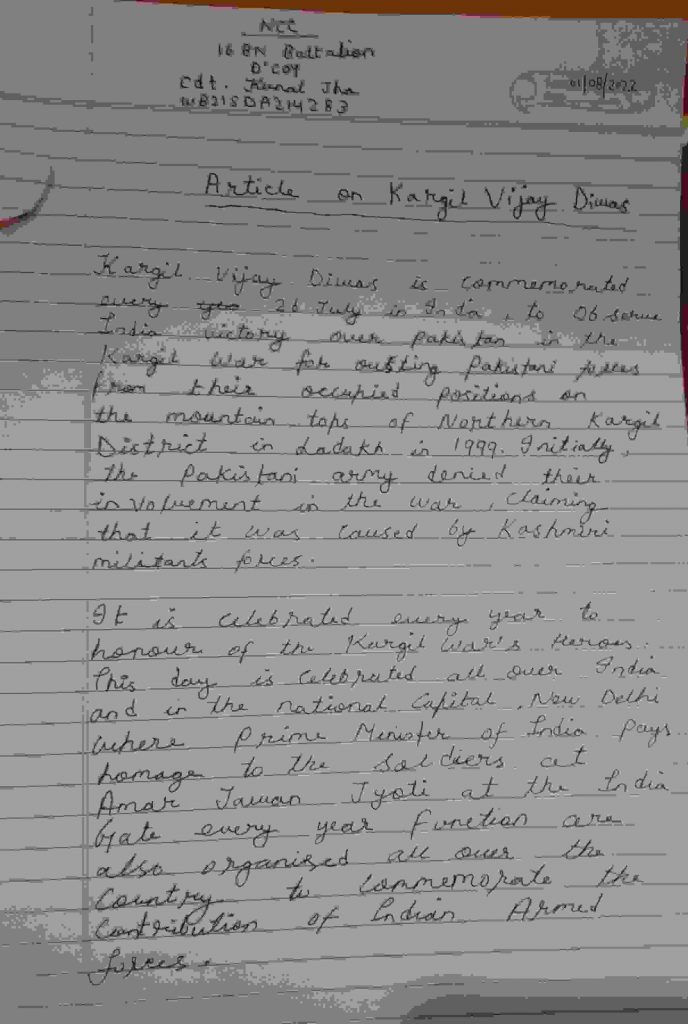 NCC
16 BN Battalion
D'COY
Cdt. Kunal Jha
WB21SDA214283
01/08/2022
Article on Kargil Vijay Diwas
Kargil Vijay Diwas is commemorated
every 26 July in India, to observe
India victory over Pakistan in the
Kargil War for ousting Pakistani forces
from their occupied positions on
the mountain tops of Northern Kargil
District in Ladakh in 1999. Initially,
the Pakistani army denied their
involvement in the war, claiming
that it was caused by Kashmiri
militants forces.
It is celebrated every year to
honour of the Kargil War's Heroes.
This day is celebrated all over India
and in the national Capital, New Delhi
where Prime Minister of India pays
homage to the soldiers at
Amar Jawan Jyoti at the India
Gate every year function are
also organised all over the
Country to commemorate the
Contribution of Indian Armed
forces.